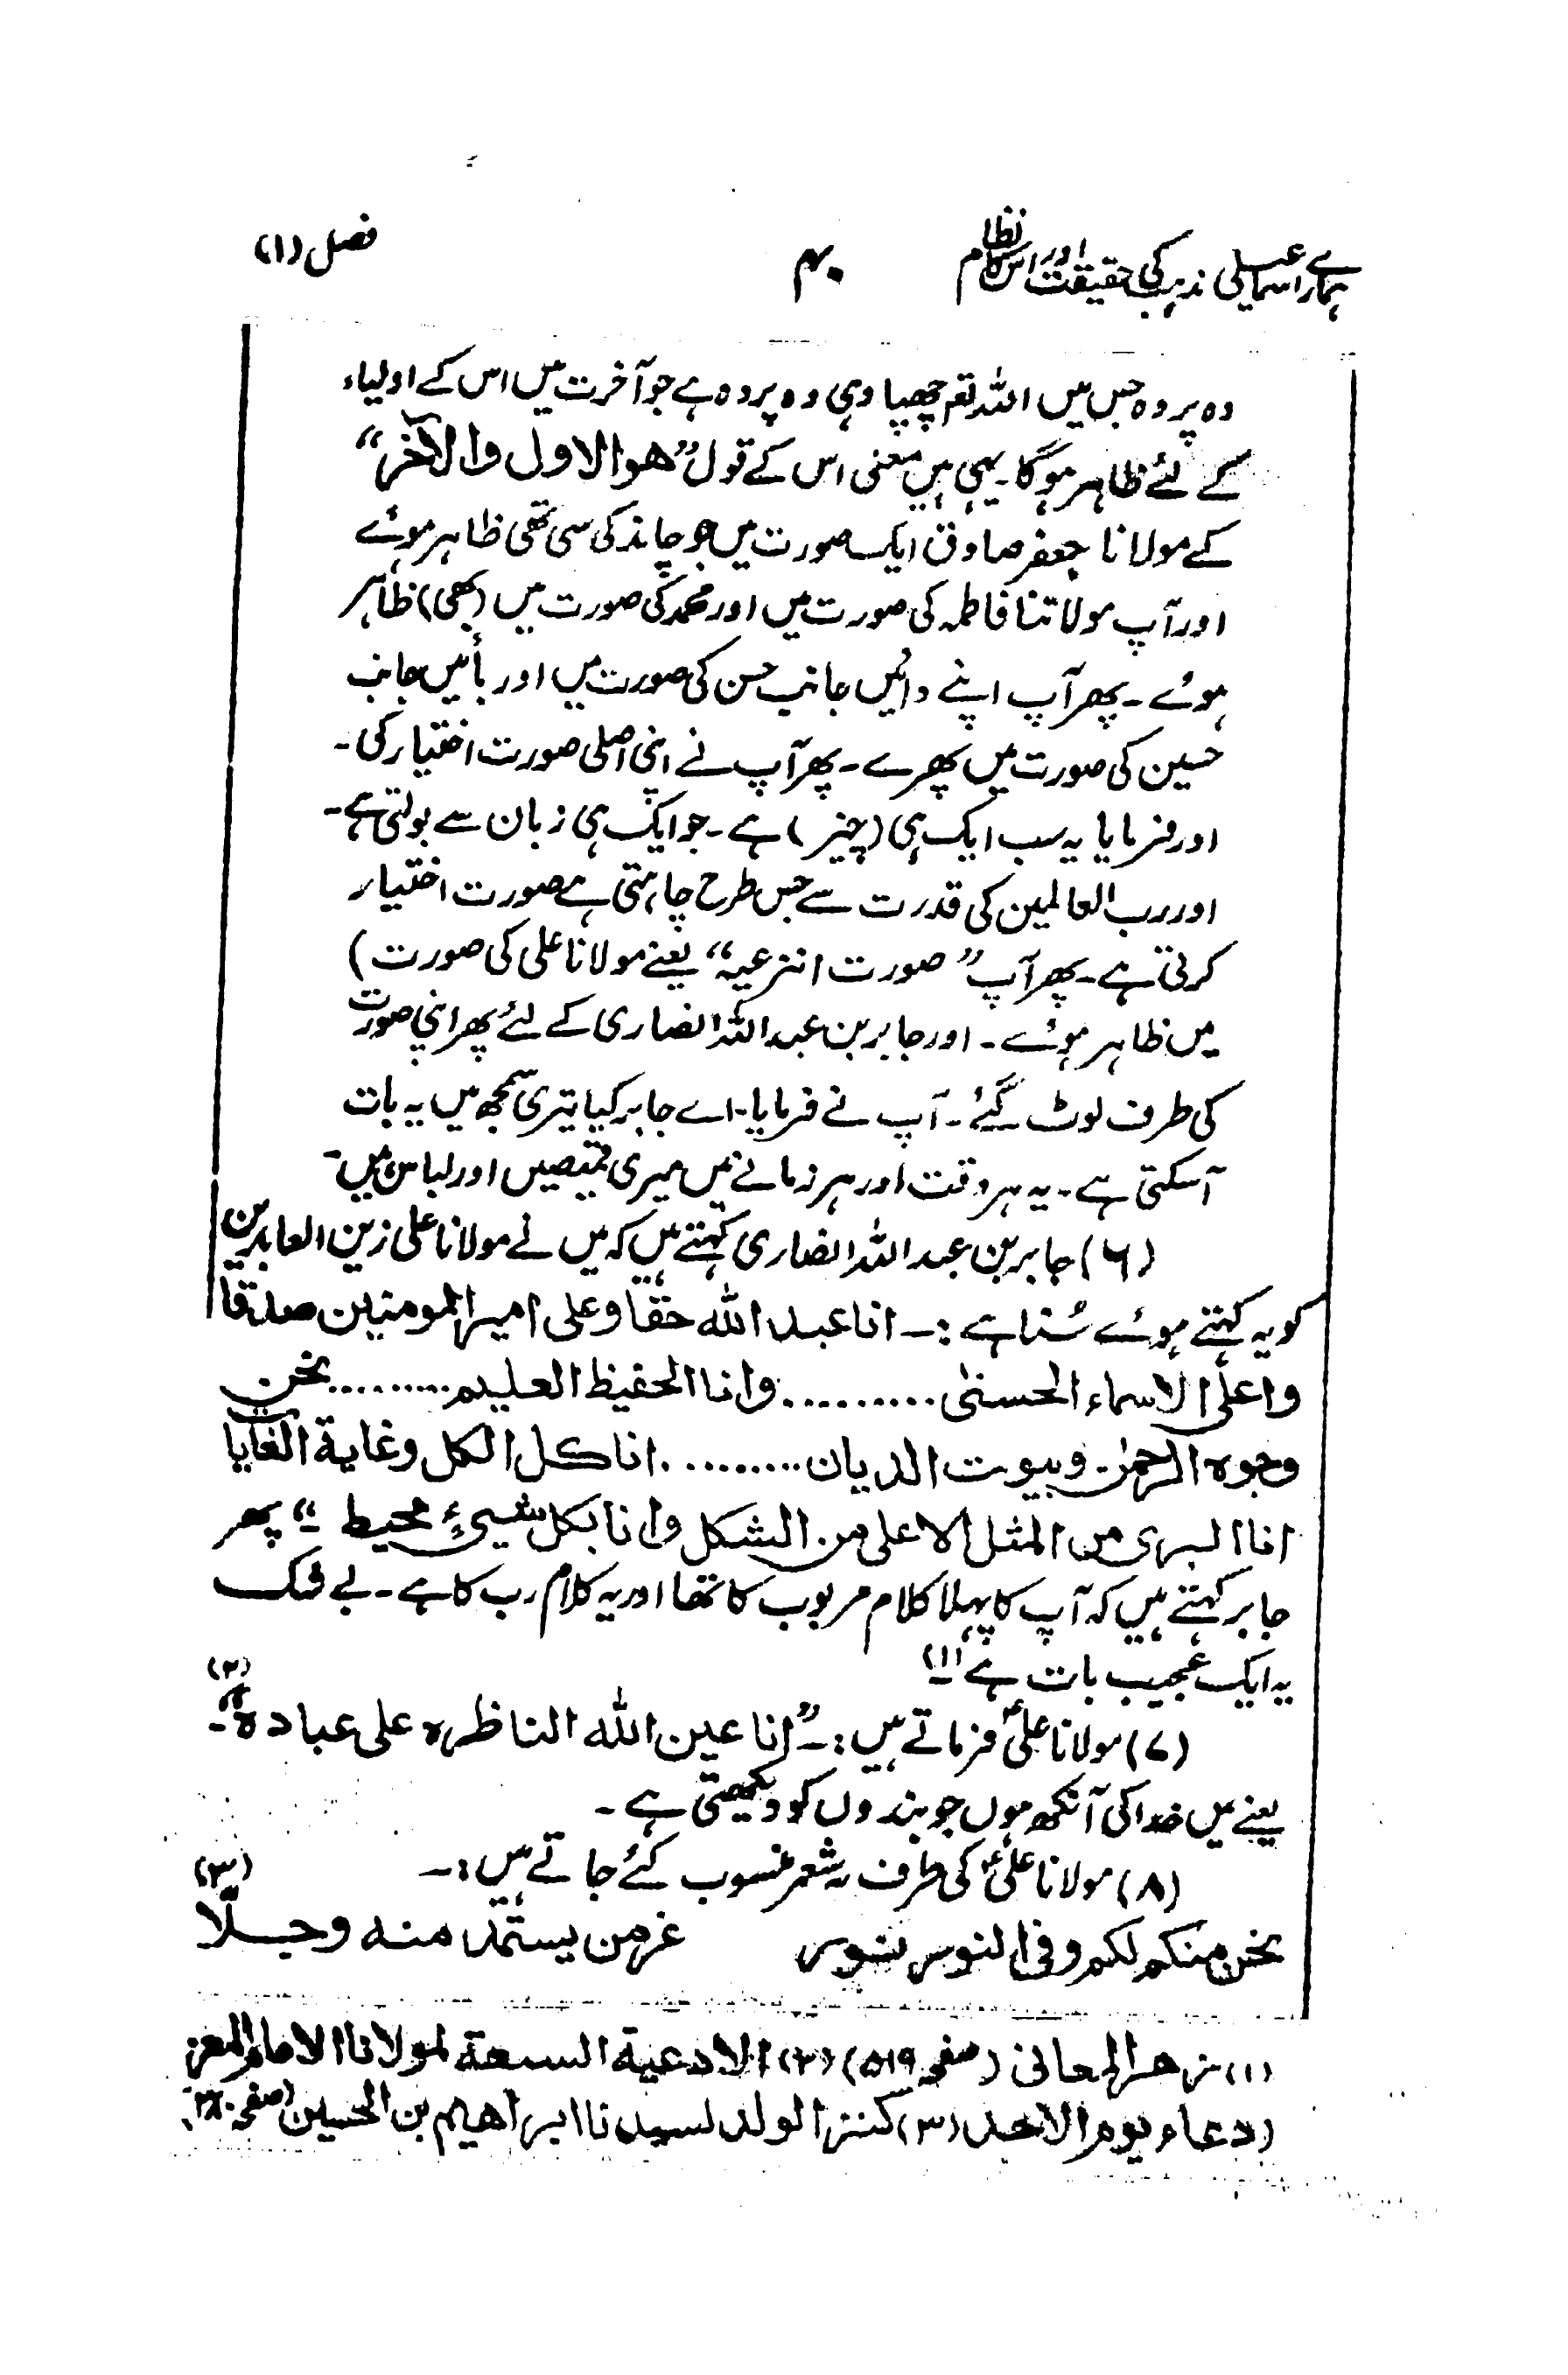 ہمارے اسماعیلی مذہب کی حقیقت اور اس کا نظام ۴۰ فصل (۱)
وہ پردہ جس میں اللہ تعہ چھپا وہی وہ پردہ ہے جو آخرت میں اس کے اولیاء
کے لئے ظاہر ہوگا۔ یہی ہیں معنی اس کے قول ”ھو الاول والآخر“
کے مولانا جعفر صادق ایک صورت میں جو چاند کی سی تھی ظاہر ہوئے
اور آپ مولاتنا فاطمہ کی صورت میں اور محمد کی صورت میں (بھی) ظاہر
ہوئے ۔ پھر آپ اپنے دائیں جانب حسن کی صورت میں اور بائیں جانب
حسین کی صورت میں پھرے ۔ پھر آپ نے اپنی اصلی صورت اختیار کی ۔
اور فرمایا یہ سب ایک ہی (چیز) ہے ۔ جو ایک ہی زبان سے بولتی ہے ۔
اور رب العالمین کی قدرت سے جس طرح چاہتی ہے صورت اختیار
کرتی ہے ۔ پھر آپ ”صورت انزعیہ“ یعنے مولانا علی کی صورت)
میں ظاہر ہوئے ۔ اور جابر بن عبد اللہ انصاری کے لئے پھر اپنی صورت
کی طرف لوٹ گئے ۔ آپ نے فرمایا ۔ اے جابر کیا تیری سمجھ میں یہ بات
آسکتی ہے ۔ یہ ہر وقت اور ہر زمانے میں میری قمیصیں اور لباس ہیں ۔
(۶) جابر بن عبد اللہ انصاری کہتے ہیں کہ میں نے مولانا علی زین العابدین
کو یہ کہتے ہوئے سُنا ہے :۔ انا عبد اللہ حقا وعلی امیر المومنین صدقا
واعلی الاسماء الحسنیٰ .......... وانا الحفیظ العلیم ......... نحن
وجوہ الرحمٰن وبیوت الدیان .......... انا کل الکل وغایة الغایا
انا البری من المثل الاعلی من الشکل وانا بکل شیئ محیط ۔“ پھر
جابر کہتے ہیں کہ آپ کا پہلا کلام مربوب کا تھا اور یہ کلام رب کا ہے ۔ بے شک
یہ ایک عجیب بات ہے ۔ (۱)
(۷) مولانا علیؑ فرماتے ہیں :۔ ”انا عین اللہ الناظرہ علی عبادہ“ ۔ (۲)
یعنے میں خدا کی آنکھ ہوں جو بندوں کو دیکھتی ہے ۔
(۸) مولانا علیؑ کی طرف یہ شعر منسوب کئے جاتے ہیں :۔ (۳)
نحن منکم لکم وفی النور نور غر من یستمد منہ وجلّا
(۱) زھر المعانی (صفحہ ۵۱۹) (۲) الادعیة السبعة لمولانا الامام المعز
(دعاء یوم الاحد (۳) کنز الولد لسیدنا ابراھیم بن الحسین (صفحہ